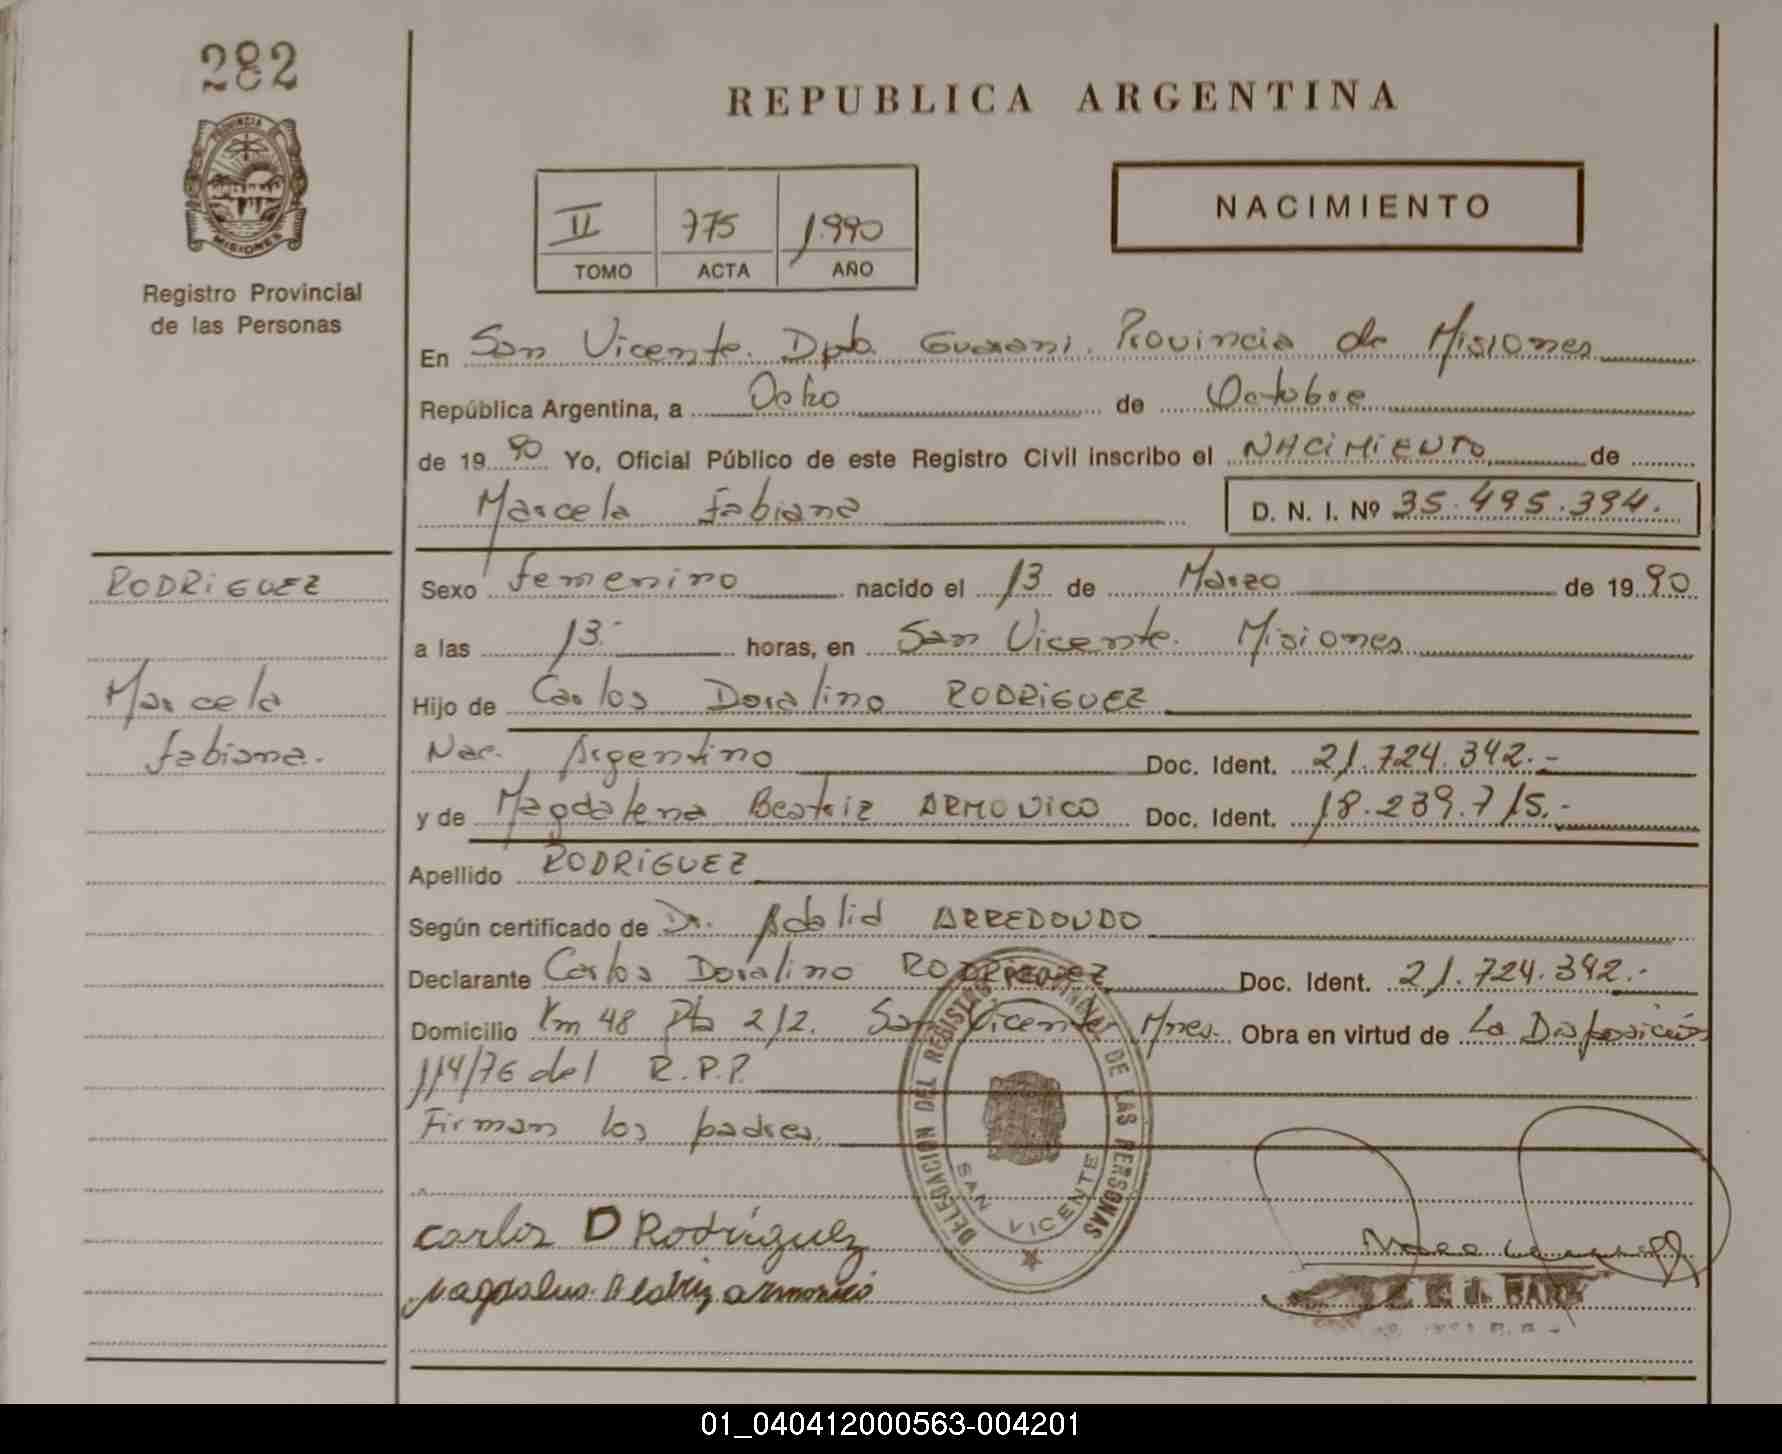 282
PROVINCIA DE
MISIONES
Registro Provincial
de las Personas
RODRIGUEZ
Marcela
Fabiana.
REPUBLICA ARGENTINA
II 775 1.990
TOMO ACTA AÑO
NACIMIENTO
En San Vicente. Dpto. Guarani. Provincia de Misiones
República Argentina, a Ocho de Octubre
de 19 90 Yo, Oficial Público de este Registro Civil inscribo el NACIMIENTO de
Marcela Fabiana D. N. I. Nº 35.495.394.
Sexo femenino nacido el 13 de Marzo de 19 90
a las 13.- horas, en San Vicente. Misiones
Hijo de Carlos Doralino RODRIGUEZ
Nac. Argentino Doc. Ident. 21.724.342.-
y de Magdalena Beatriz ARMONICO Doc. Ident. 18.239.715.-
Apellido RODRIGUEZ
Según certificado de Dr. Adalid ARREDONDO
Declarante Carlos Doralino RODRIGUEZ Doc. Ident. 21.724.342.-
Domicilio Km 48 Pta 212. San Vicente Mnes. Obra en virtud de La Disposición
114/76 del R.P.P.
Firman los padres.
DELEGACION DEL REGISTRO PROVINCIAL DE LAS PERSONAS
SAN VICENTE
Carlos D Rodríguez
Magdalena Beatriz armonico
01_040412000563-004201